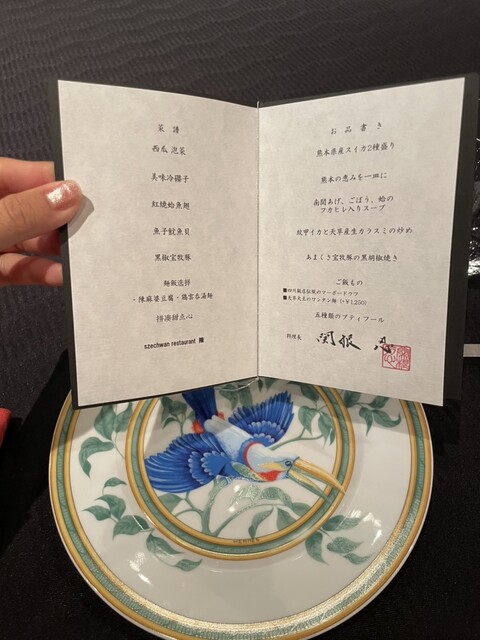 菜譜
西瓜泡菜
美味冷碟子
紅燒蛤魚翅
魚子魷魚貝
黒椒宝牧豚
麺飯选择
・陳麻婆豆腐・鶏雲呑湯麺
拼湊甜点心
szechwan restaurant 陳
お品書き
熊本県産スイカ2種盛り
熊本の恵みを一皿に
南関あげ、ごぼう、蛤の
アカヒレ入りスープ
紋甲イカと天草産生カラスミの炒め
あまくさ宝牧豚の黒胡椒焼き
ご飯もの
■四川飯店伝統のマーボードウフ
■天草大王のワンタン麺(+¥1,250)
五種類のプティフール
料理長
HERMES